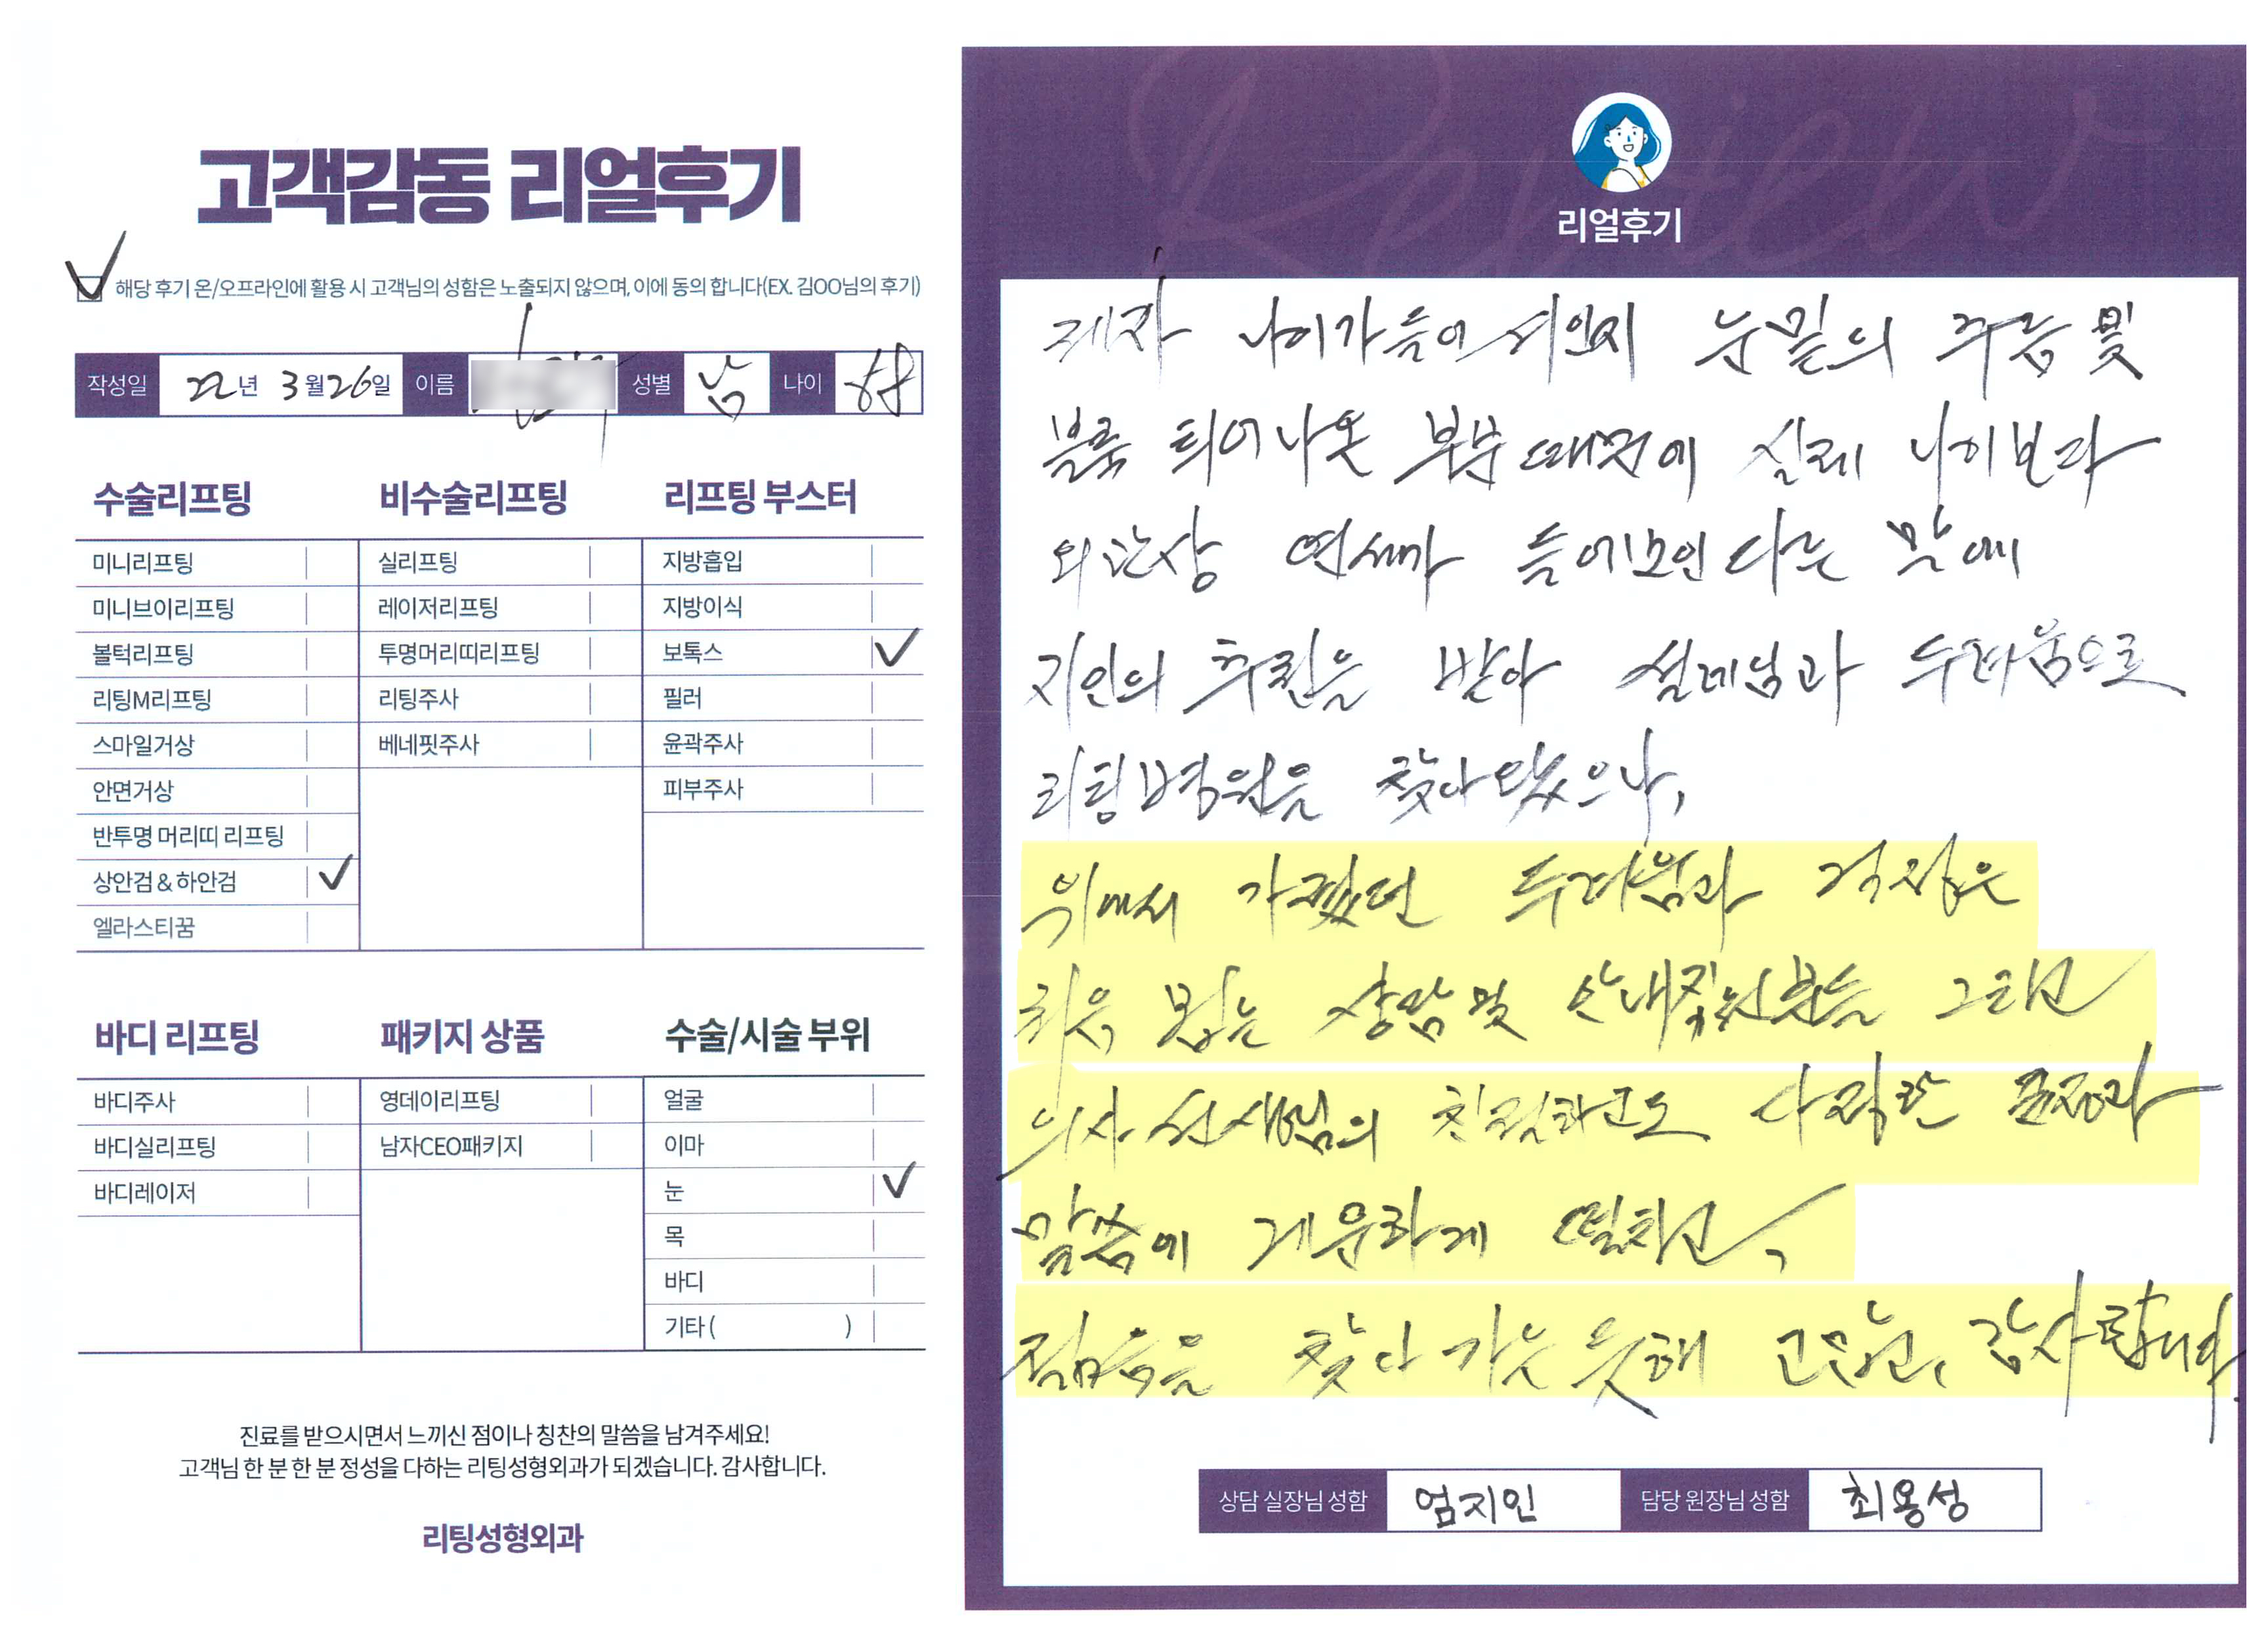 고객감동 리얼후기
해당 후기 온/오프라인에 활용 시 고객님의 성함은 노출되지 않으며, 이에 동의 합니다(EX. 김OO님의 후기)
작성일 22년 3월26일 이름 성별 남 나이
수술리프팅
미니리프팅
미니브이리프팅
볼턱리프팅
리팅M리프팅
스마일거상
안면거상
반투명 머리띠 리프팅
상안검&하안검
엘라스티꿈
비수술리프팅
실리프팅
레이저리프팅
투명머리띠리프팅
리팅주사
베네핏주사
리프팅 부스터
지방흡입
지방이식
보톡스
필러
윤곽주사
피부주사
바디 리프팅
바디주사
바디실리프팅
바디레이저
패키지 상품
영데이리프팅
남자CEO패키지
수술/시술 부위
얼굴
이마
눈
목
바디
기타 ( )
진료를 받으시면서 느끼신 점이나 칭찬의 말씀을 남겨주세요!
고객님 한 분 한 분 정성을 다하는 리팅성형외과가 되겠습니다. 감사합니다.
리팅성형외과
Review
리얼후기
나이가 들어서인지 눈밑의 주름 및
불룩 튀어나온 부분 때문에 실제 나이보다
외관상 연세가 들어보인다는 말에
지인의 추천을 받아 설레임과 두려움으로
리팅병원을 찾아왔으나,
위에서 가졌던 두려움과 걱정은
처음 뵙는 상담 및 안내직원분들 그리고
의사 선생님의 친절하고도 다정한
말씀에 개운하게 떨치고,
젊음을 찾아 가는 듯해 고맙고, 감사합니다.
상담 실장님 성함 엄지인 담당 원장님 성함 최용성